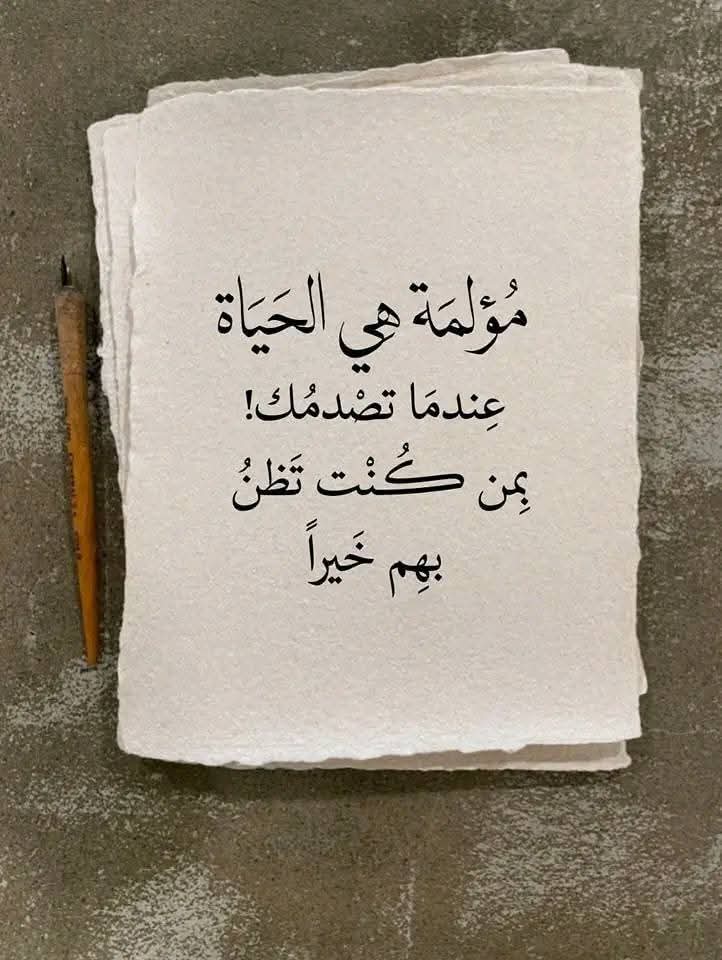 مُؤلمَة هِي الحَيَاة
عِندمَا تصْدمُك!
بِمن كُنْت تَظنُ
بهِم خَيراً